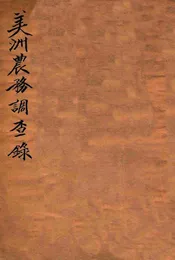 美洲農務調查錄